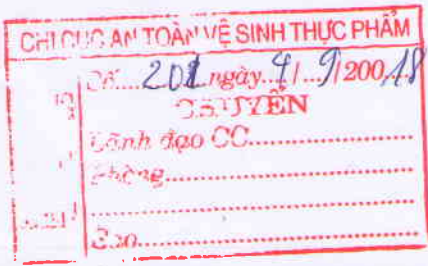 CHI CỤC AN TOÀN VỆ SINH THỰC PHẨM
Số.... 201 ngày...4/...9/200.18
CHUYỂN
Lãnh đạo CC....................
Phòng....................
....................
Sao....................